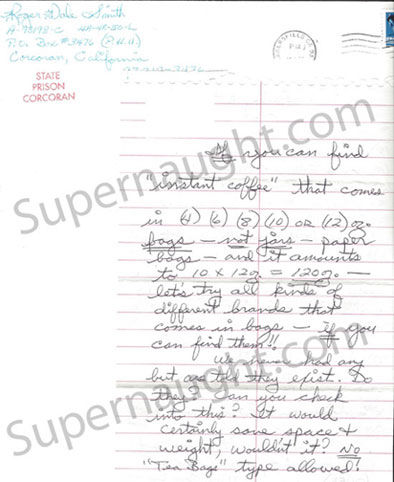 Roger Dale Smith
P.O. Box #3476
Corcoran, California
STATE
PRISON
CORCORAN
If you can find
"instant coffee" that comes
in (4) (6) (8) (10) or (12) oz.
bags — not jars — paper
bags — and it amounts
to 10 x 12oz. = 120oz. —
let's try all kinds of
different brands that
comes in bags — if you
can find them!!
We never had any
but are told they exist. Do
they? Can you check
into this? It would
certainly save space &
weight, wouldn't it? No
"Tea Bags" type allowed!
Supernaught.com
Supernaught.com
Supernaught.com